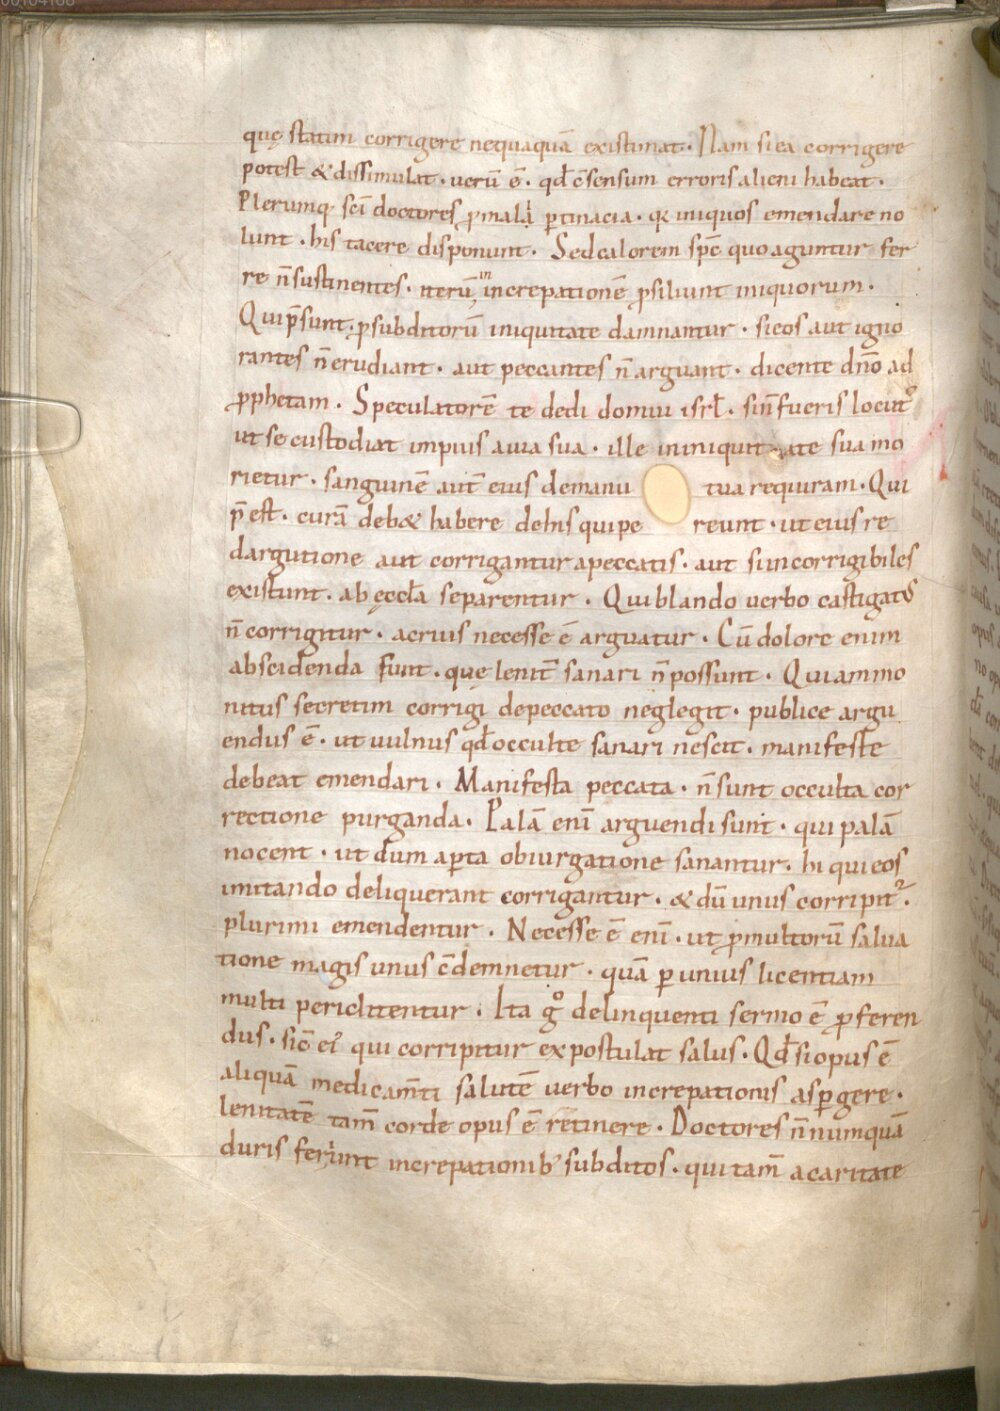 quę statim corrigere nequaquā existimat · Nam si ea corrigere
potest & dissimulat · uerū ē · qđ c̄sensum erroris alieni habeat ·
Plerumq; sc̄i doctores ꝓ mala ꝑtinacia · qr iniquos emendare no
lunt · his tacere disponunt · Sed calorem sp̄c quo aguntur fer
re n̄ sustinentes · iterū in increpationē ꝓsiliunt iniquorum ·
Qui p̄sunt · ꝓ subditorū iniquitate damnantur · si eos aut igno
rantes n̄ erudiant · aut peccantes n̄ arguant · dicente dn̄o ad
ꝓphetam · Speculatorē te dedi domui isrł · si n̄ fueris locut᾿
ut se custodiat impius a uia sua · ille in iniquitate sua mo
rietur · sanguinē aut̄ eius de manu tua requiram · Qui
p̄ est · curā deb& habere de his qui pe reunt · ut eius re
dargutione aut corrigantur a peccatis · aut si incorrigibiles
existunt · ab ęccła separentur · Qui blando uerbo castigat᾿
n̄ corrigitur · acrius necesse ē arguatur · Cū dolore enim
abscidenda sunt · quę lenit̄ sanari n̄ possunt · Qui ammo
nitus secretim corrigi de peccato neglegit · publice argu
endus ē · ut uulnus qđ occulte sanari nescit · manifeste
debeat emendari · Manifesta peccata · n̄ sunt occulta cor
rectione purganda · Palā eni᷄ arguendi sunt · qui palā
nocent · ut dum aꝑta obiurgatione sanantur · hi qui eos
imitando deliquerant corrigantur · & dū unus corripit᾿ ·
plurimi emendentur · Necesse ē eni᷄ · ut ꝓ multorū salua
tione magis unus c̄demnetur · quā ꝑ unius licentiam
multi periclitentur · Ita gͦ delinquenti sermo ē ꝓferen
dus · sic̄ ei᾿ qui corripitur expostulat salus · Qđ si opus ē
aliquā medicam̄ti salutē uerbo increpationis asꝑgere ·
lenitatē tam̄ corde opus ē retinere · Doctores n̄numquā
duris feriunt increpationib; subditos · qui tam̄ a caritate